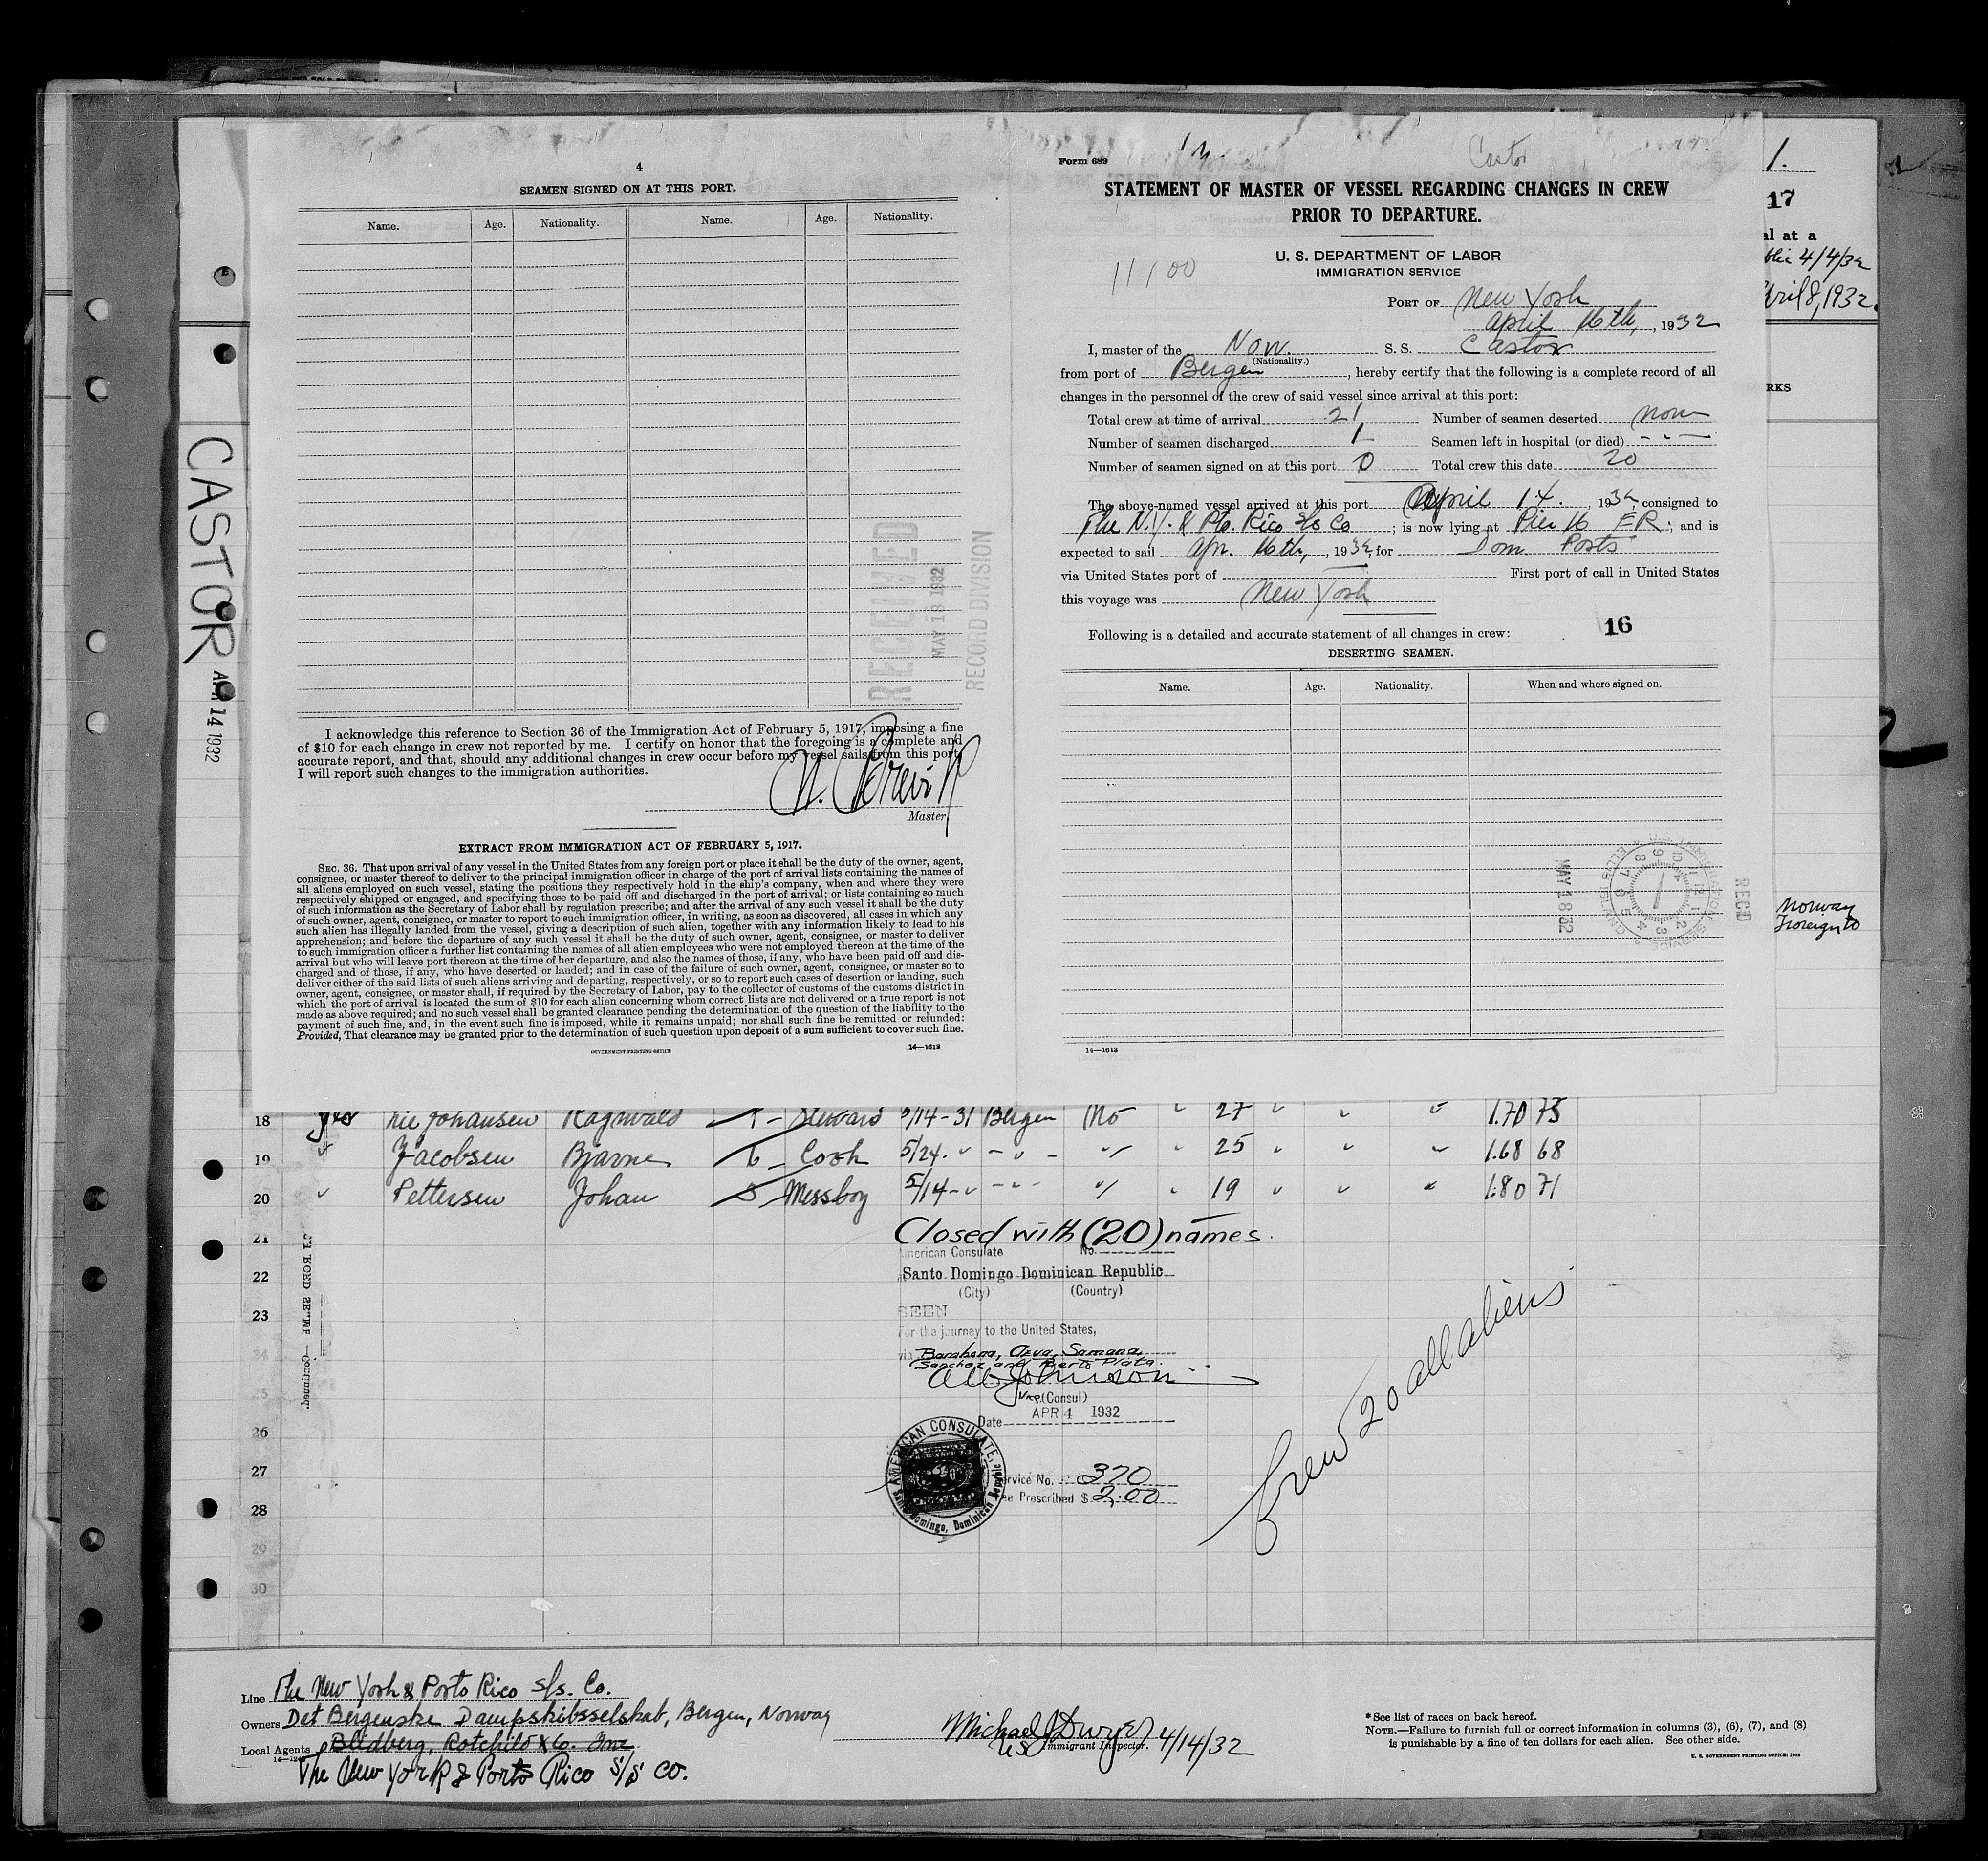 4
SEAMEN SIGNED ON AT THIS PORT.
Name. Age. Nationality. Name. Age. Nationality.
RECEIVED
MAY 18 1932
RECORD DIVISION
I acknowledge this reference to Section 36 of the Immigration Act of February 5, 1917, imposing a fine
of $10 for each change in crew not reported by me. I certify on honor that the foregoing is a complete and
accurate report, and that, should any additional changes in crew occur before my vessel sails from this port,
I will report such changes to the immigration authorities.
Master.
EXTRACT FROM IMMIGRATION ACT OF FEBRUARY 5, 1917.
SEC. 36. That upon arrival of any vessel in the United States from any foreign port or place it shall be the duty of the owner, agent,
consignee, or master thereof to deliver to the principal immigration officer in charge of the port of arrival lists containing the names of
all aliens employed on such vessel, stating the positions they respectively hold in the ship's company, when and where they were
respectively shipped or engaged, and specifying those to be paid off and discharged in the port of arrival; or lists containing so much
of such information as the Secretary of Labor shall by regulation prescribe; and after the arrival of any such vessel it shall be the duty
of such owner, agent, consignee, or master to report to such immigration officer, in writing, as soon as discovered, all cases in which any
such alien has illegally landed from the vessel, giving a description of such alien, together with any information likely to lead to his
apprehension; and before the departure of any such vessel it shall be the duty of such owner, agent, consignee, or master to deliver
to such immigration officer a further list containing the names of all alien employees who were not employed thereon at the time of the
arrival but who will leave port thereon at the time of her departure, and also the names of those, if any, who have been paid off and dis-
charged and of those, if any, who have deserted or landed; and in case of the failure of such owner, agent, consignee, or master so to
deliver either of the said lists of such aliens arriving and departing, respectively, or so to report such cases of desertion or landing, such
owner, agent, consignee, or master shall, if required by the Secretary of Labor, pay to the collector of customs of the customs district in
which the port of arrival is located the sum of $10 for each alien concerning whom correct lists are not delivered or a true report is not
made as above required; and no such vessel shall be granted clearance pending the determination of the question of the liability to the
payment of such fine, and, in the event such fine is imposed, while it remains unpaid; nor shall such fine be remitted or refunded:
Provided, That clearance may be granted prior to the determination of such question upon deposit of a sum sufficient to cover such fine.
GOVERNMENT PRINTING OFFICE 14—1613
Form 689
Castor
STATEMENT OF MASTER OF VESSEL REGARDING CHANGES IN CREW
PRIOR TO DEPARTURE.
U. S. DEPARTMENT OF LABOR
IMMIGRATION SERVICE
11/00
PORT OF New York
April 16th, , 1932
I, master of the Now. S. S. Castor
(Nationality.)
from port of Bergen, hereby certify that the following is a complete record of all
changes in the personnel of the crew of said vessel since arrival at this port:
Total crew at time of arrival 21 Number of seamen deserted none
Number of seamen discharged 1 Seamen left in hospital (or died) - - -
Number of seamen signed on at this port 0 Total crew this date 20
The above-named vessel arrived at this port April 14. , 1932, consigned to
The N.Y. & Pto. Rico S/s Co ; is now lying at Pier 16 ER ; and is
expected to sail Apr. 16th, , 1932, for Dom. Ports
via United States port of First port of call in United States
this voyage was New York
Following is a detailed and accurate statement of all changes in crew: 16
DESERTING SEAMEN.
Name. Age. Nationality. When and where signed on.
MAY 18 32
REC'D
14—1613
1.
17
al at a
blic 4/4/32
April 8, 1932.
RKS
Norway
Foreign to
CASTOR
APR 14 1932
18 yes Nie Johansen Ragnvald 1 - Steward 5/14-31 Bergen No " 27 " " " 1.70 75
19 " Jacobsen Bjarne 6 - Cook 5/24. " - " - " " 25 " " " 1.68 68
20 " Pettersen Johan 5 Messboy 5/14 - " - - - " " 19 " " " 1.80 71
21
22
23
24
25
26
27
28
29
30
Continued.
Closed with (20) names.
American Consulate No.
Santo Domingo Dominican Republic
(City) (Country)
SEEN
For the journey to the United States,
via Barahona, Azua, Samana,
Sanchez and Puerto Plata.
Johnson
Vice (Consul)
Date APR 4 1932
AMERICAN CONSULATE,
Santo Domingo, Dominican Republic
Service No. 370
Fee Prescribed $ 2.00
Crew 20 all aliens
Line The New York & Porto Rico S/s. Co.
Owners Det Bergenske Dampskibsselskab, Bergen, Norway
Local Agents Bledberg, Rotchild & Co. Inc
The New York & Porto Rico S/S Co.
Michael J Dwyer 4/14/32
US Immigrant Inspector.
* See list of races on back hereof.
NOTE.—Failure to furnish full or correct information in columns (3), (6), (7), and (8)
is punishable by a fine of ten dollars for each alien. See other side.
U. S. GOVERNMENT PRINTING OFFICE: 1930